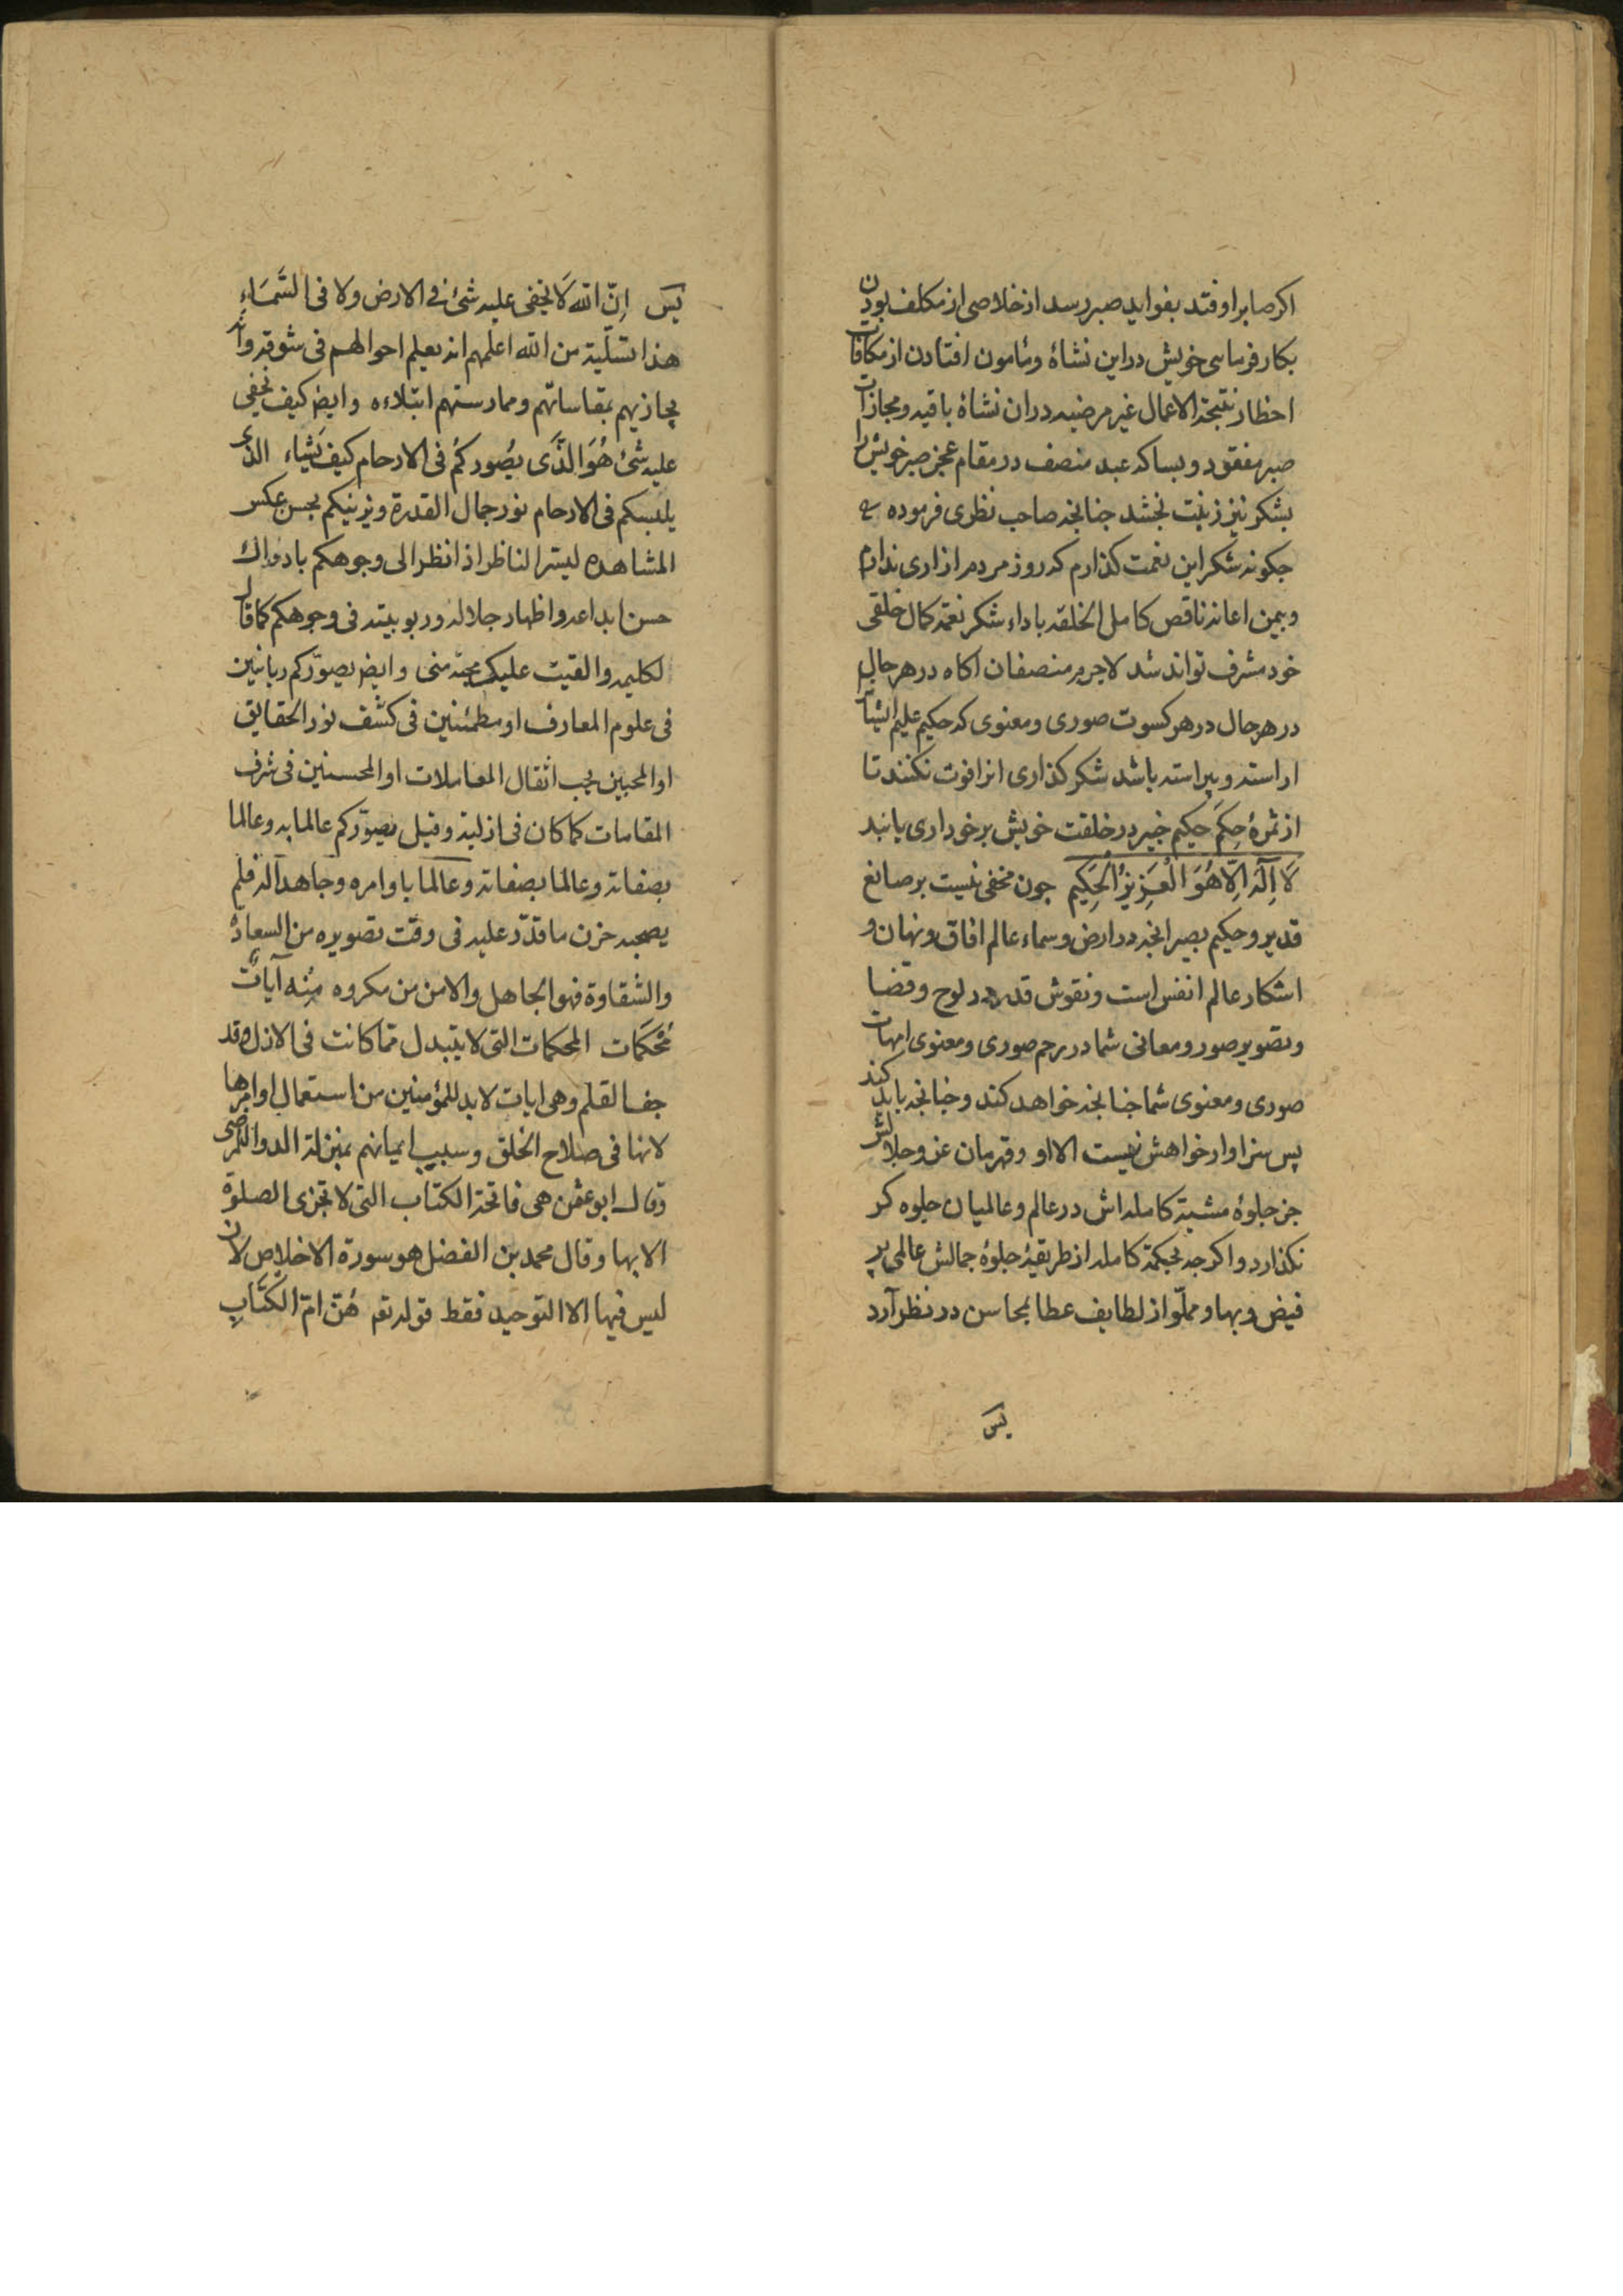 اکر صابر اوفتد بفواید صبر رسد از خلاصی از مکلف بودن
بکار فرمایی خویش در این نشاۀ و مامون افتادن از مکافات
احظار نتیجة الاعمال غیر مرضیه در ان نشاۀ باقیه و مجازات
صبر مفقود و بسا که عبد منصف در مقام عجز صبر خویش را
بشکر نیز زینت بخشد جنانجه صاحب نظری فرموده
جکونه شکر این نعمت کذارم که روز مردم ازاری ندارم
و بیمن اعانه ناقص کامل الخلقه باداء شکر نعمة کمال خلقی
خود مشرف تواند شد لاجرم منصفان اکاه در هر حال
در هر حال در هر کسوت صوری و معنوی که حکیم علیم ایشان
اراسته و پیراسته باشد شکر کذاری انرا فوت نکنند تا
از ثمرۀ حِکَم حکیم خبیر در خلقت خویش برخورداری یابند
لَا اِلَهَ اِلّا هُوَ الْعَزِیزُ الْحَکِیم جون مخفی نیست بر صانع
قدیر و حکیم بصیر انجه در ارض و سماء عالم افاق و نهان و
اشکار عالم انفس است و نقوش قدر در لوح و قضا
و تصویر صور و معانی شما در رحم صوری و معنوی امهات
صوری و معنوی شما جنانجه خواهد کند و جنانجه باید کند
پس سزاوار خواهش نیست الا او و قهرمان عز و جلالش
جز جلوۀ مشیة کامله اش در عالم و عالمیان جلوه کر
نکذارد و اکرجه بحکمة کامله از طریقۀ جلوۀ جمالش عالمی پر
فیض و بها و مملوّ از لطایف عطا بمحاسن در نظر آرد
پس
پس اِنّ الله لَا یخفی علیه شئ فی الارض ولا فی السَّمَاءِ
هذا تسلّیة من الله اعلمهم انه یعلم احوالهم فی شوقه وانه
یجازیهم بمقاساتهم وممارستهم ابتلاءه وایض کیف یخفی
علیه شئ هُوَ الَّذَی یصُوركُم فی الارحام کیف یَشَاء الذی
یلبسکم فی الارحام نور جمال القدرة ویزینکم بحسن عکس
المشاهده لیسر الناظر اذا نظر الی وجوهکم بادراك
حسن ابداعه واظهار جلاله وربوبیته فی وجوهکم کما قال
لکلیمه والقیت علیک محبّة منی وایض یصوّرکم ربانیین
فی علوم المعارف او مطمئنین فی کشف نور الحقایق
او المحبین بحب اثقال المعاملات او المحسنین فی شرف
المقامات کما کان فی ازلیة وقیل یصوّرکم عالما به وعالما
بصفاته وعالما بصفاته وعالما باوامره وجاهدا له فلم
یصحبه حزن ما قدّر علیه فی وقت تصویره من السعادۀ
والشقاوة فهو الجاهل والامن من مکروه مِنه آیاتٌ
مُحْکَمَات المحکمات التی لا یتبدل مما کانت فی الازل وقد
جف القلم وهی ایات لا بد للمؤمنین من استعمال اوامرها
لانها فی صلاح الخلق وسبیب ایمانهم بمنزلة الدوا للمرضی
وقال ابو عثمن هی فاتحة الکتاب التی لا تجزی الصلوة
الا بها وقال محمد بن الفضل هو سورة الاخلاص لان
لیس فیها الا التوحید فقط قوله تع هُنّ امّ الکتَابِ